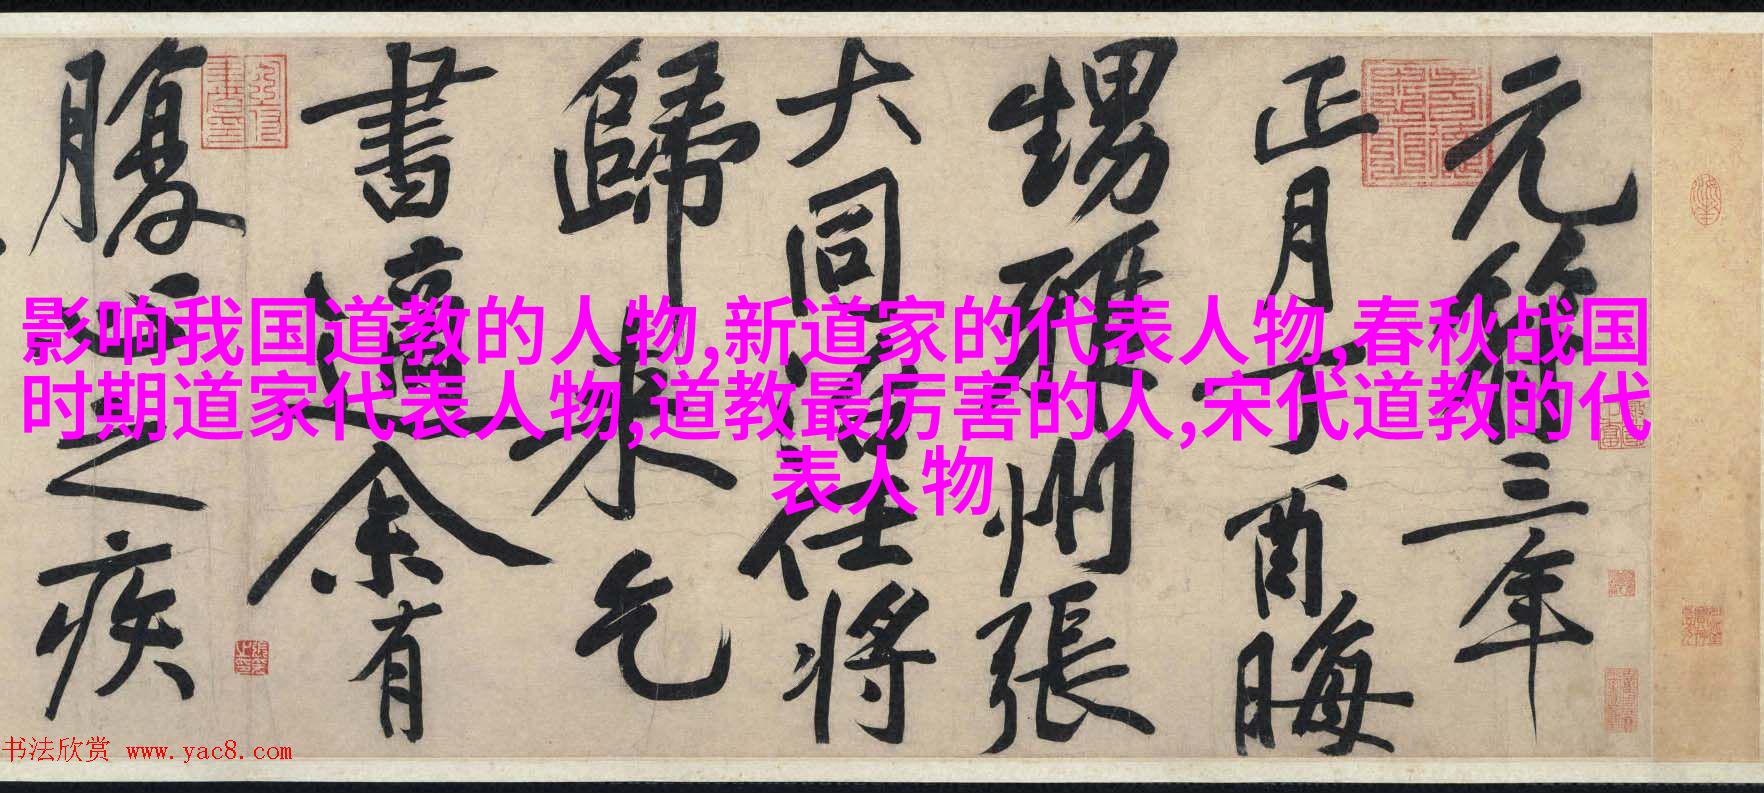 影响我国道教的人物,新道家的代表人物,春秋战国
时期道家代表人物,道教最厉害的人,宋代道教的代
表人物
元符三年
正月丁酉晦
甥雅州張
大同治任將
歸來乞
書適余有
腹心之疾
书法欣赏 www.yac8.com